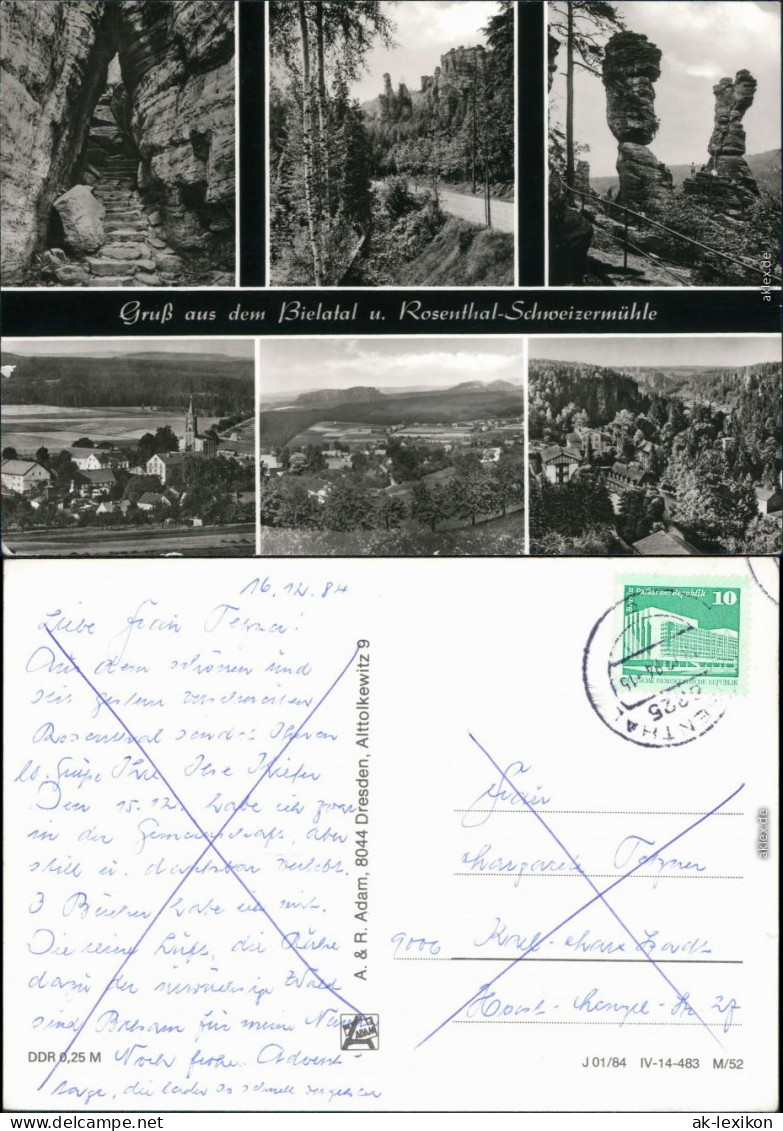 aklex.de
Gruß aus dem Bielatal u. Rosenthal-Schweizermühle
16.12.84
Liebe Frau Tezner!
Aus dem schönen und
seit gestern verschneiten
Rosenthal sendet Ihnen
lb. Grüße Ihre Ilse Kiefer
Den 15.12. habe ich zwar
in der Gemeinschaft, aber
still u. dankbar verlebt.
3 Bücher habe ich mit.
Die reine Luft, die Ruhe
dazu der Wald
sind Balsam für meine
Noch frohe Advents-
tage, die leider so schnell vergehen
DDR 0,25 M
A. & R. Adam, 8044 Dresden, Alttolkewitz 9
ADAM
Berlin Palast der Republik 10
DEUTSCHE DEMOKRATISCHE REPUBLIK
8325
ENTHAL
Frau
Margarete Tezner
9000 Karl-Marx-Stadt
Horst-Menzel-Str. 27
aklex.de
J 01/84 IV-14-483 M/52
www.ak-lexikon.de
ak-lexikon